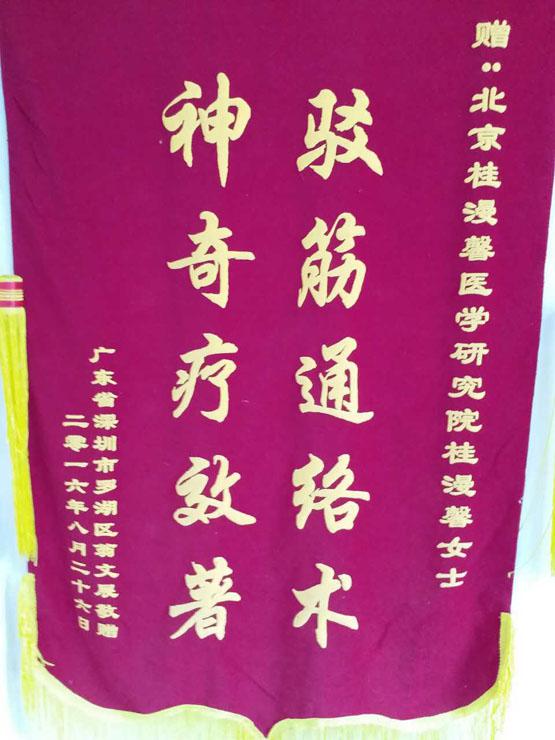 赠:北京桂漫馨医学研究院桂漫馨女士
驳筋通络术
神奇疗效著
广东省深圳市罗湖区蔡文展敬赠
二零一六年八月二十六日